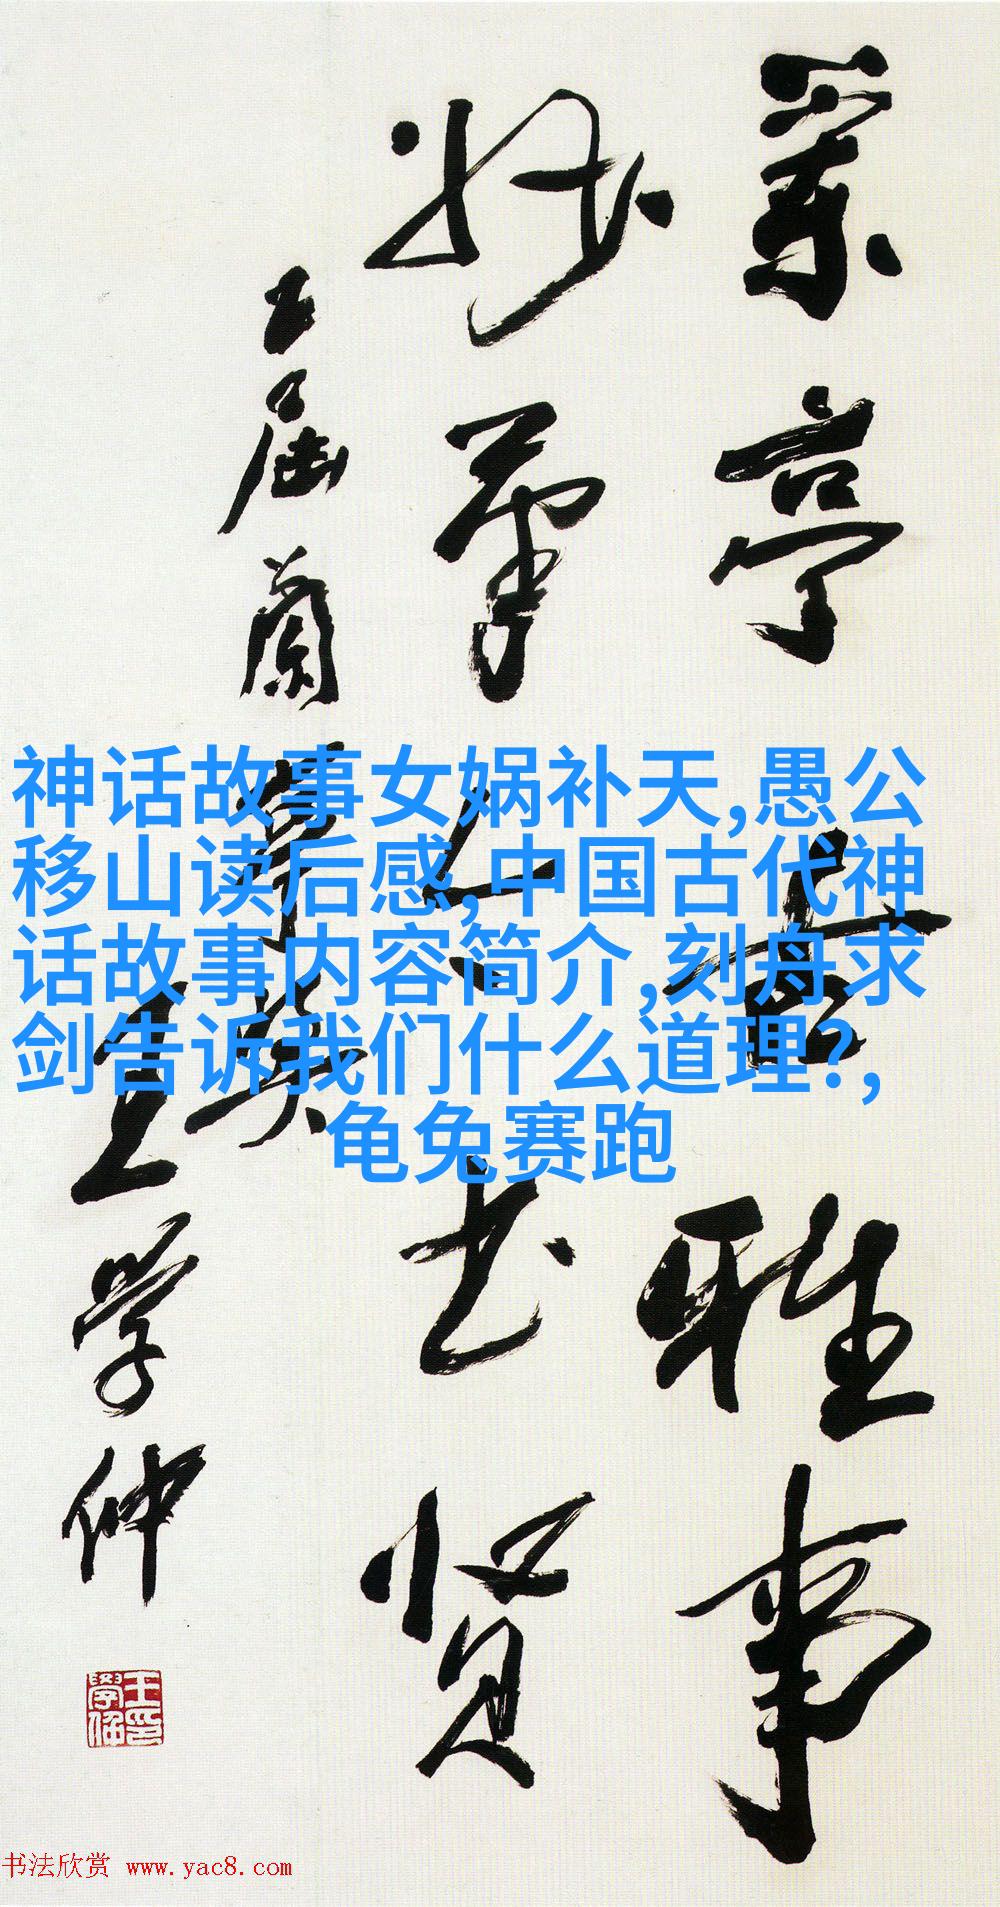 蘭亭雅事
妙笔人书贤
五届蘭亭奖
王学仲
王學仲印
神话故事女娲补天,愚公
移山读后感,中国古代神
话故事内容简介,刻舟求
剑告诉我们什么道理?,
龟兔赛跑
书法欣赏 www.yac8.com